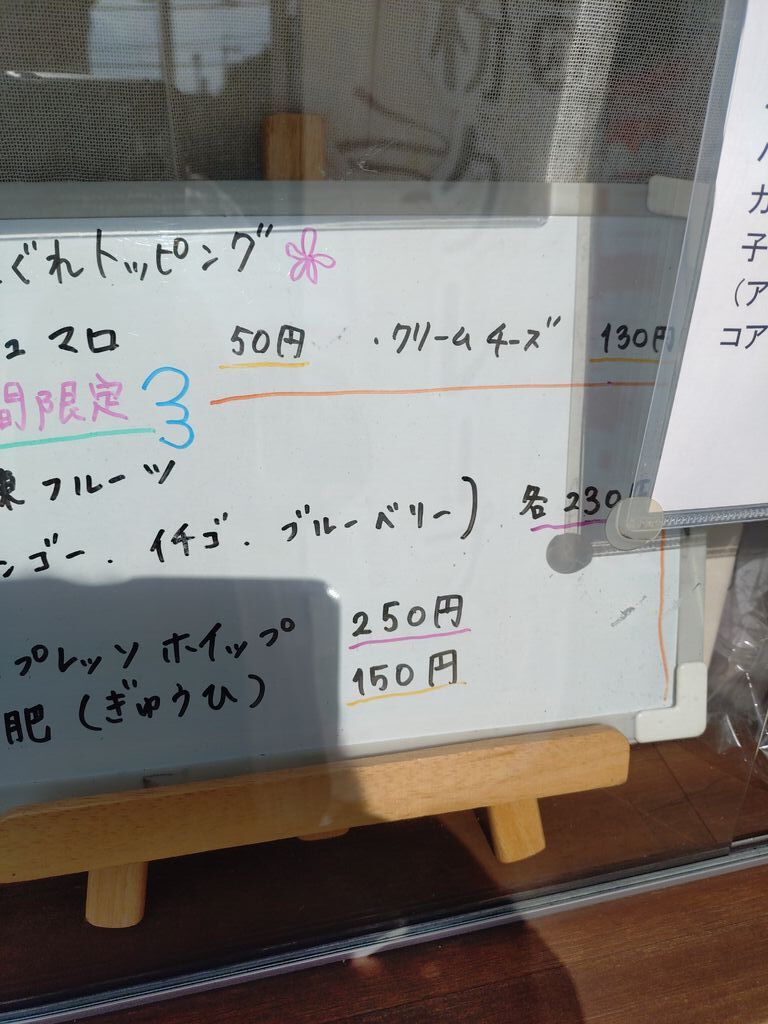 ぐれトッピング
ュマロ 50円 ・クリームチーズ 130円
間限定
凍フルーツ
ンゴー．イチゴ．ブルーベリー) 各230
プレッソホイップ 250円
肥(ぎゅうひ) 150円
カ
子
(ア
コア